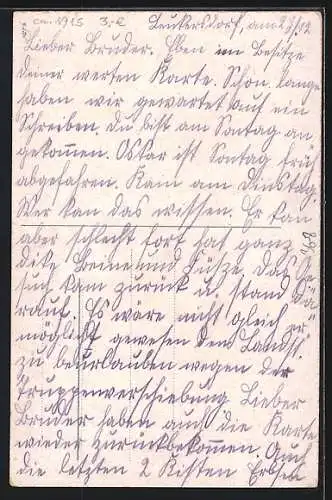 ca. 1915 3,-€
Leukersdorf, am 2
Lieber Bruder. Eben im Besitze
deiner werten Karte. Schon lange
haben wir gewartet auf ein
Schreiben. Du bist am Sontag an
gekommen. Oskar ist Sontag früh
abgefahren. Kam am Dinstag.
Wer kan das wissen. Er kan
aber schlecht fort hat ganz
dike Beine und Füsze. Das Ge
such kam zurück u. stand da
rauf. Es wäre nicht gleich er
möglicht gewesen dem Landst.
zu beurlauben wegen der
Truppenverschiebung Lieber
Bruder haben auch die Karte
wieder zurückbekommen. Auch
die letzten 2 Kisten Erbsen